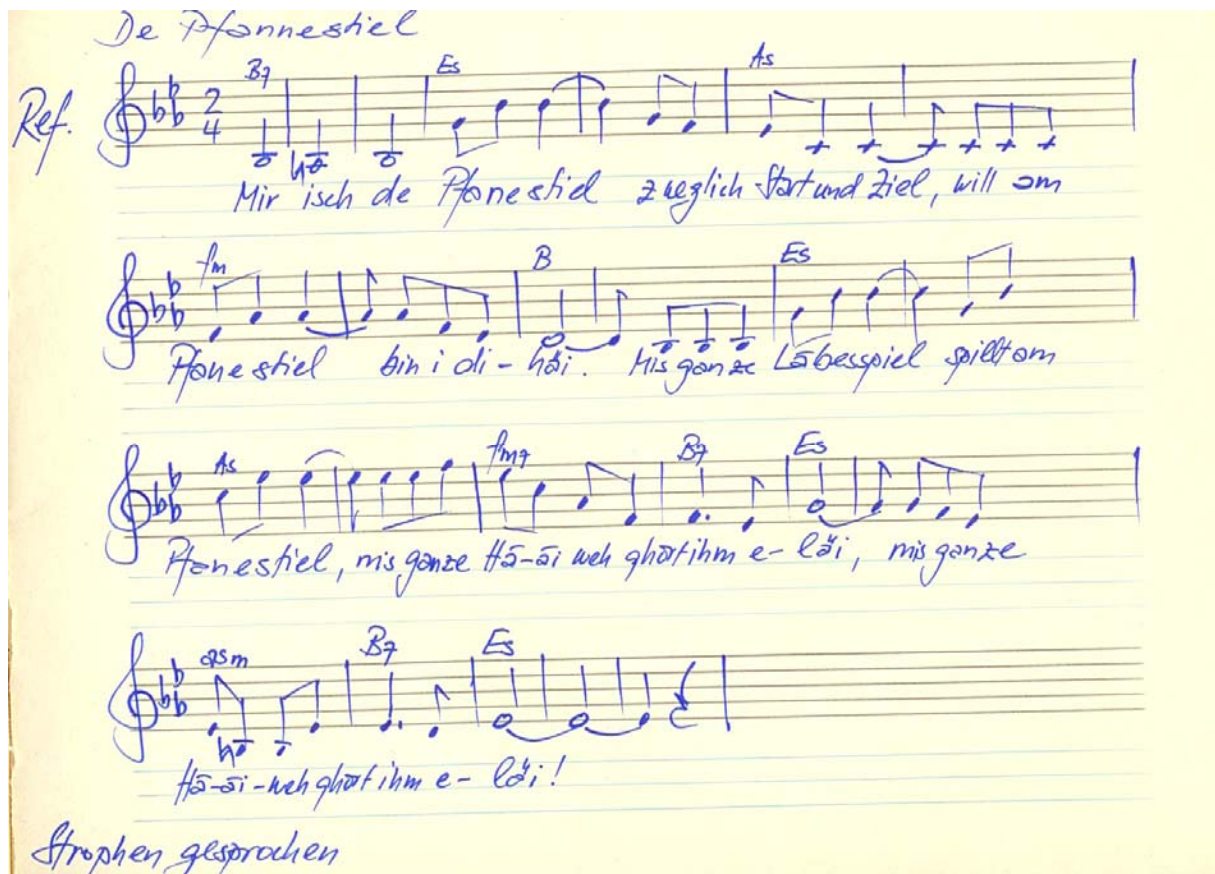 De Pfannestiel
B7 Es As
Ref. 2/4
Mir isch de Pfanestiel zueglich Start und Ziel, will am
fm B Es
Pfanestiel bin i di-häi. Mis ganze Läbesspiel spillt am
As fm7 B7 Es
Pfanestiel, mis ganze Hä-äi weh ghört ihm e-läi, mis ganze
asm B7 Es
Hä-äi-weh ghört ihm e-läi!
Strophen gesprochen